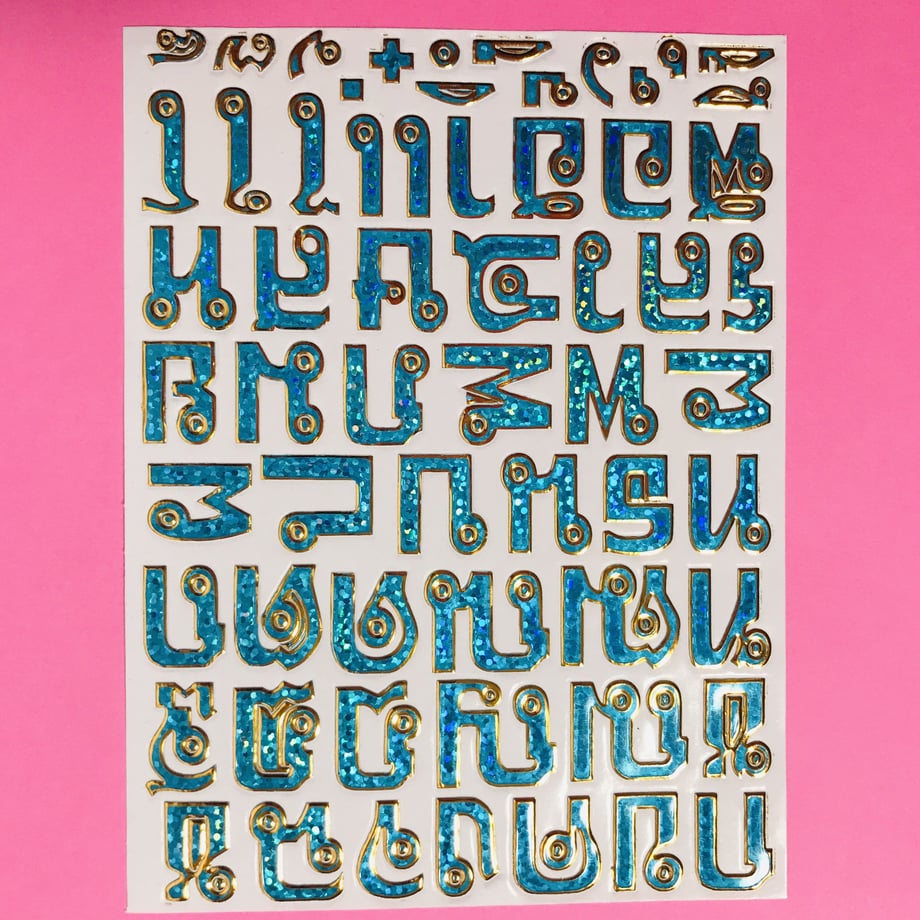 ก ข ค ง จ ฉ ช
ซ ฌ ญ ฎ ฏ ฐ
ฑ ฒ ณ ด ต ถ
ท ธ น บ ป ผ
ฝ พ ฟ ภ ม ย
ร ล ว ศ ษ ส ห
ฬ อ ฮ า แ ไ ใ โ